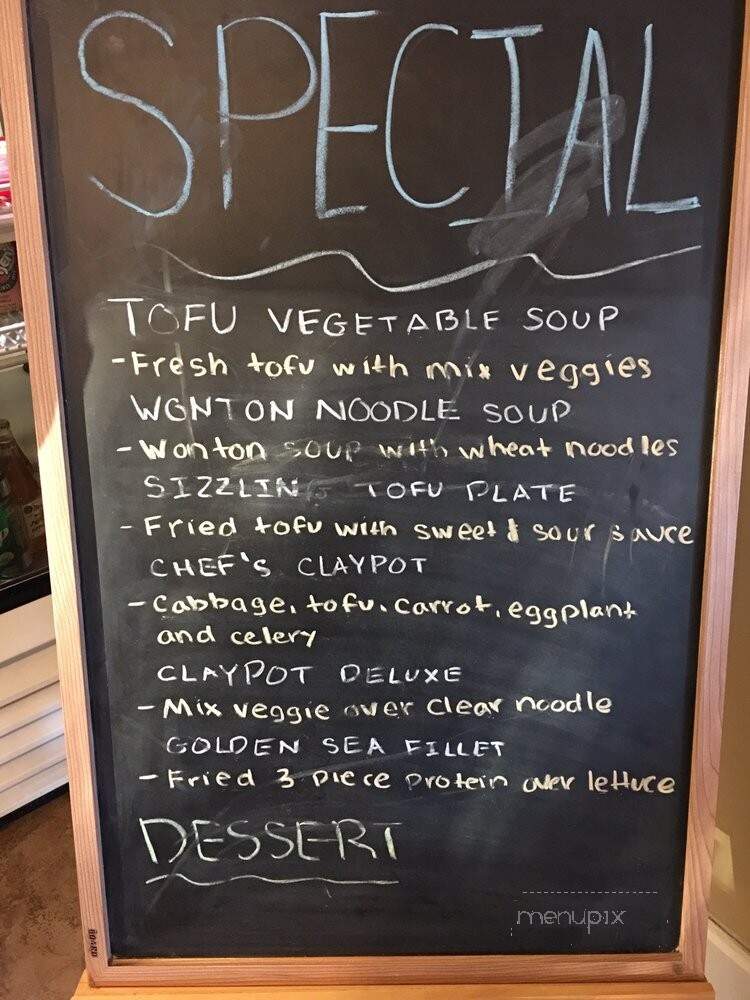 SPECIAL
TOFU VEGETABLE SOUP
-Fresh tofu with mix veggies
WONTON NOODLE SOUP
-Wonton soup with wheat noodles
SIZZLING TOFU PLATE
-Fried tofu with sweet & sour sauce
CHEF'S CLAYPOT
-Cabbage, tofu, carrot, eggplant
and celery
CLAYPOT DELUXE
-Mix veggie over clear noodle
GOLDEN SEA FILLET
-Fried 3 piece protein over lettuce
DESSERT
menupix